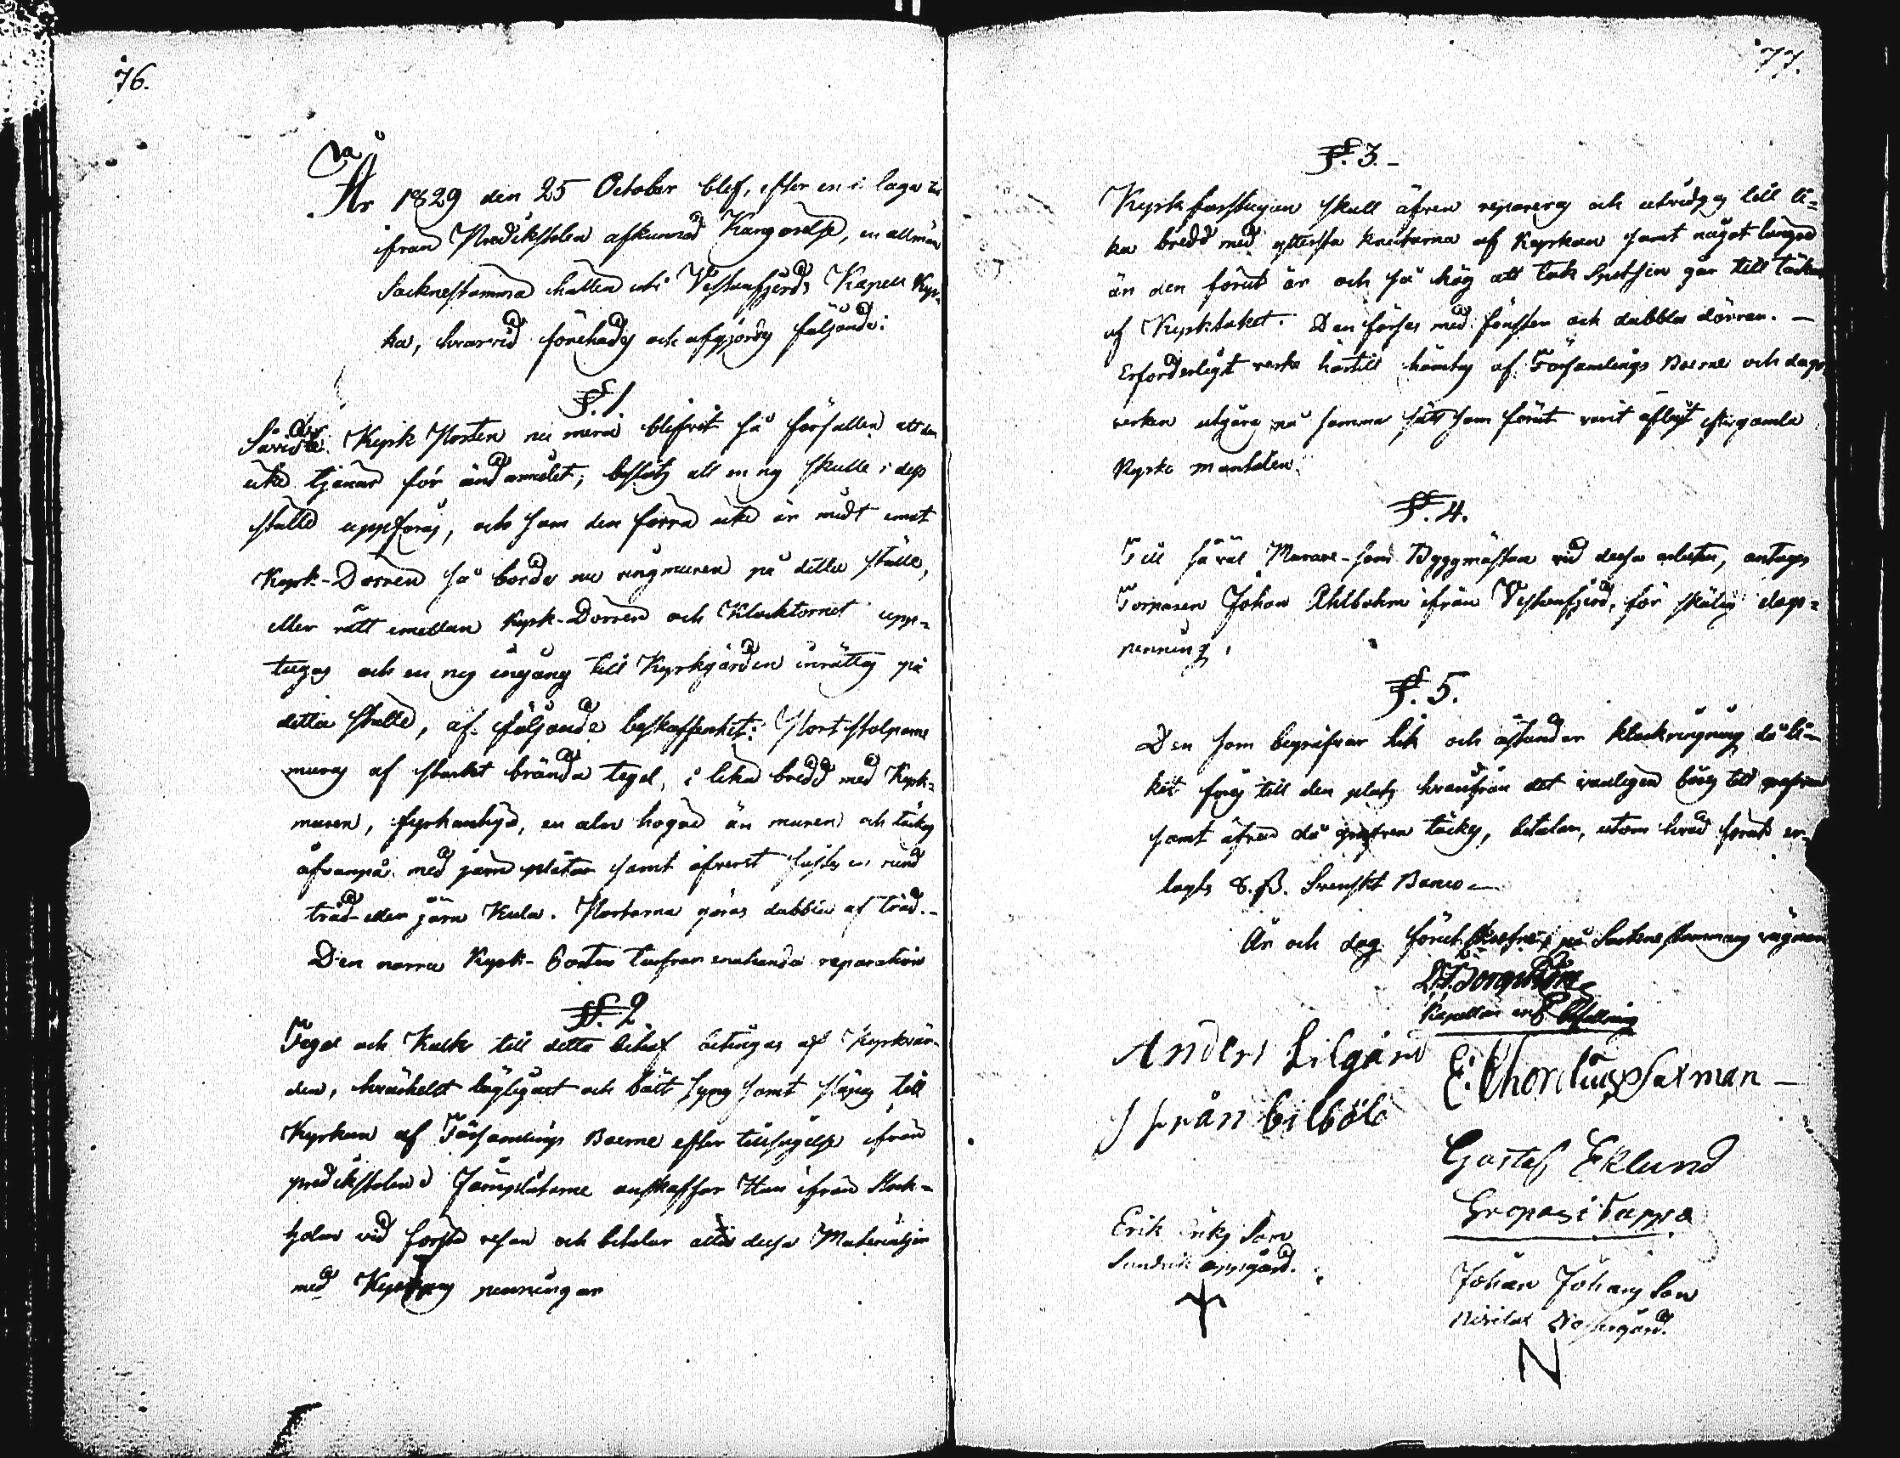 76.
År 1829 den 25 October blef, efter en i laga tid
ifrån Predikstolen afkunnad Kungörelse, en allmän
Socknestämma hållen uti Vestanfjerds Kapell Kyr-
ka, hvarvid förehades och afgjordes följande:
§. 1.
Kyrk Porten nu mera blifvit så förfallen att den
icke tjenar för ändamålet; beslöts att en ny skulle i dess
ställe uppföras, och som den förra icke är midt emot
Kyrk-Dörren så borde nu ringmuren på detta ställe,
eller rätt emellan Kyrk-Dörren och Klocktornet upp-
tagas och en ny ingång till Kyrkgården inrättas på
detta ställe, af följande beskaffenhet: Portstolparne
muras af starkt brända tegel, i lika bredd med Kyrk-
muren, fyrkantiga, en aln högre än muren och täckas
ofvanpå med jern plåtar samt öfverst sättes en rund
träd eller jern Kula. Portarna göras dubbla af träd.-
Den norra Kyrk-Porten tarfvar enahanda reparation
§. 2
Tegel och Kalk till detta behof betingas af Kyrkvär-
den, hvarhelst lägligast och bäst synes samt släpas till
Kyrkan af Församlings Boerne efter tillsägelse ifrån
predikstolen. Jernplåtarne anskaffar Han ifrån Stock-
holm vid första resan och betalar alla dessa Materialier
med Kyrkans penningar
77.
§. 3.-
Kyrkfarstugan skall äfven repareras och utvidgas till li-
ka bredd med yttersta knutarna af Kyrkan samt något längre
än den förut är och så hög att tak Spetsen går till täcket
af Kyrktaket. Den förses med fönster och dubbla dörrar. -
Erforderligt virke härtill hämtas af Församlings Boerne och dags
verken utgöras på samma sätt som förut varit efter gamla
Kyrko mantalen.
§. 4.
Till såväl Murare- som Byggmästare vid dessa arbeten, antages
Torparen Johan Ahlbohm ifrån Vestanfjerd, för skälig dags-
penning.
§. 5.
Den som begrafver Lik och åstundar klockringning då li-
ket föres till den plats hvarifrån det vanligen bäres till grafven
samt äfven då grafven täckes, betalar, utom hvad förut er-
lagts 8. ß. Svenskt Banco-
År och dag förut skrefne, på Sockne stämmans vägnar
Anders Lilgård
ifrån bilböle
Gustaf Eklund
Erik Eriks Son
Johan Johans Son
N